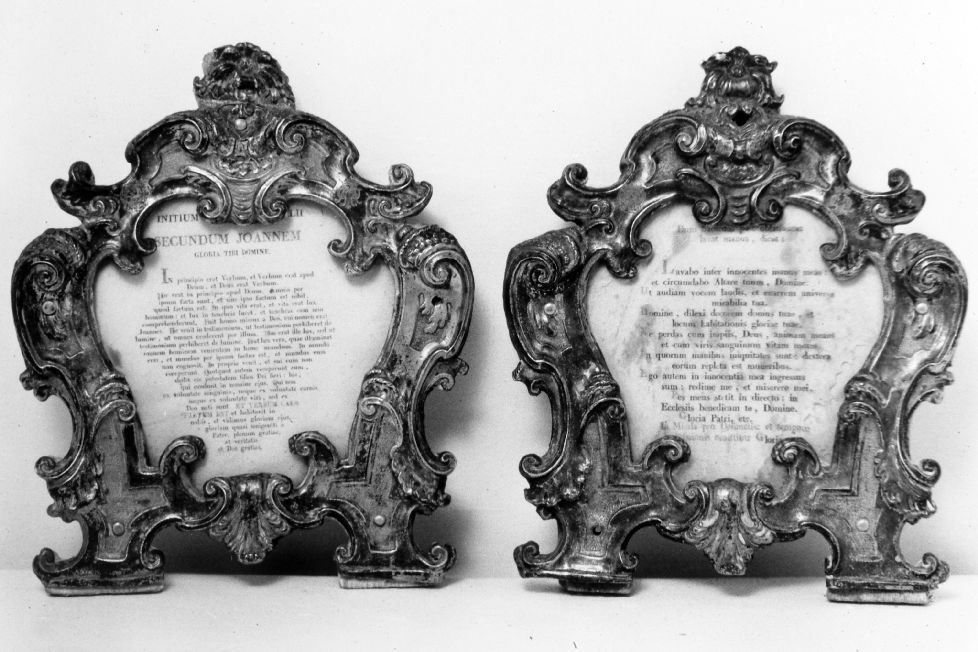 INITIUM
SECUNDUM JOANNEM
GLORIA TIBI DOMINE.
In principio erat Verbum, et Verbum erat apud
Deum, et Deus erat Verbum.
Hoc erat in principio apud Deum. Omnia per
ipsum facta sunt, et sine ipso factum est nihil,
quod factum est. In ipso vita erat, et vita erat lux
hominum: et lux in tenebris lucet, et tenebrae eam non
comprehenderunt. Fuit homo missus a Deo, cui nomen erat
Joannes. Hic venit in testimonium, ut testimonium perhiberet de
lumine, ut omnes crederent per illum. Non erat ille lux, sed ut
testimonium perhiberet de lumine. Erat lux vera, quae illuminat
omnem hominem venientem in hunc mundum. In mundo
erat, et mundus per ipsum factus est, et mundus eum
non cognovit. In propria venit, et sui eum non
receperunt. Quotquot autem receperunt eum,
dedit eis potestatem filios Dei fieri: his,
qui credunt in nomine ejus. Qui non
ex voluptate sanguinis, neque ex voluntate carnis,
neque ex voluntate viri, sed ex
Deo nati sunt. ET VERBUM CARO
FACTUM EST et habitavit in
nobis, et vidimus gloriam ejus,
gloriam quasi unigeniti a
Patre, plenum gratiae,
et veritatis.
℟. Deo gratias.
Lavabo inter innocentes manus meas
et circumdabo Altare tuum, Domine.
Ut audiam vocem laudis, et enarrem universa
mirabilia tua.
Domine, dilexi decorem domus tuae,
locum habitationis gloriae tuae.
Ne perdas cum impiis, Deus, animam meam
et cum viris sanguinum vitam meam
In quorum manibus iniquitates sunt: dextera
eorum repleta est muneribus.
Ego autem in innocentia mea ingressus
sum: redime me, et miserere mei.
Pes meus stetit in directo: in
Ecclesiis benedicam te, Domine.
Gloria Patri, etc.
Gloria